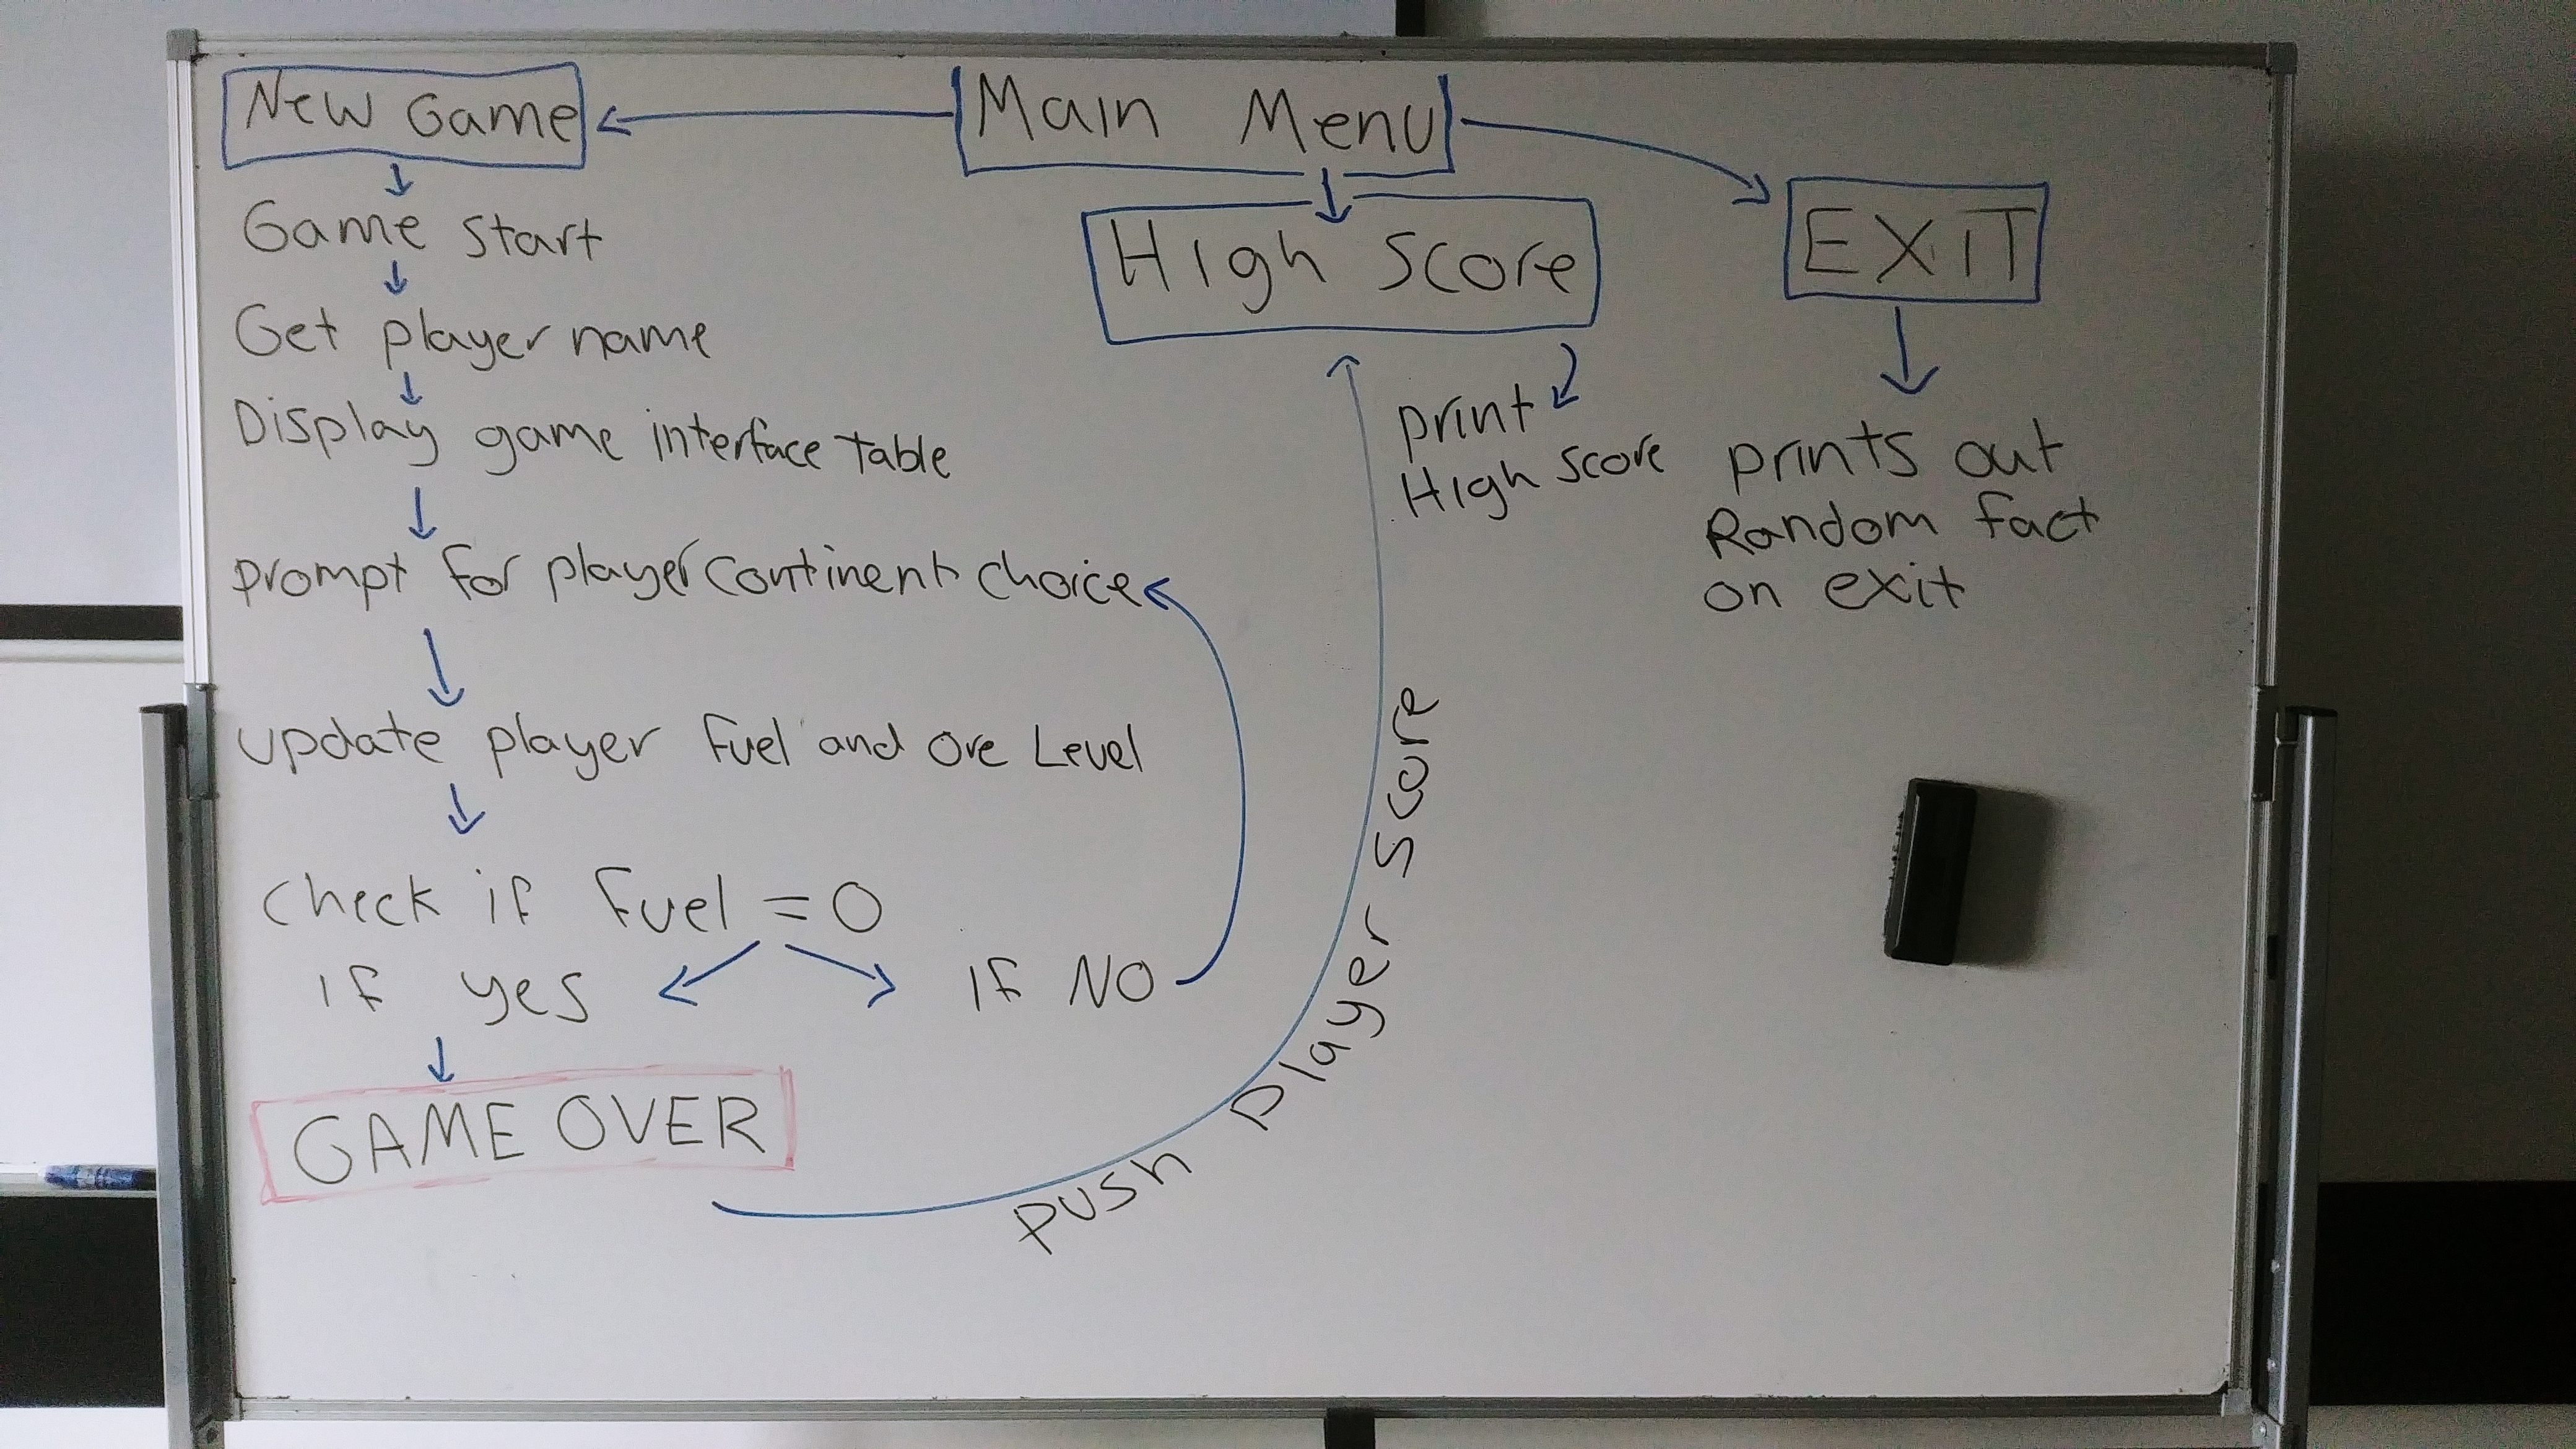 New Game
Main Menu
Game Start
Get player name
Display game interface table
prompt for player continent choice
update player fuel and ore Level
check if fuel = 0
if yes
If NO
GAME OVER
push player score
High Score
print
High Score
EXiT
prints out
Random fact
on exit